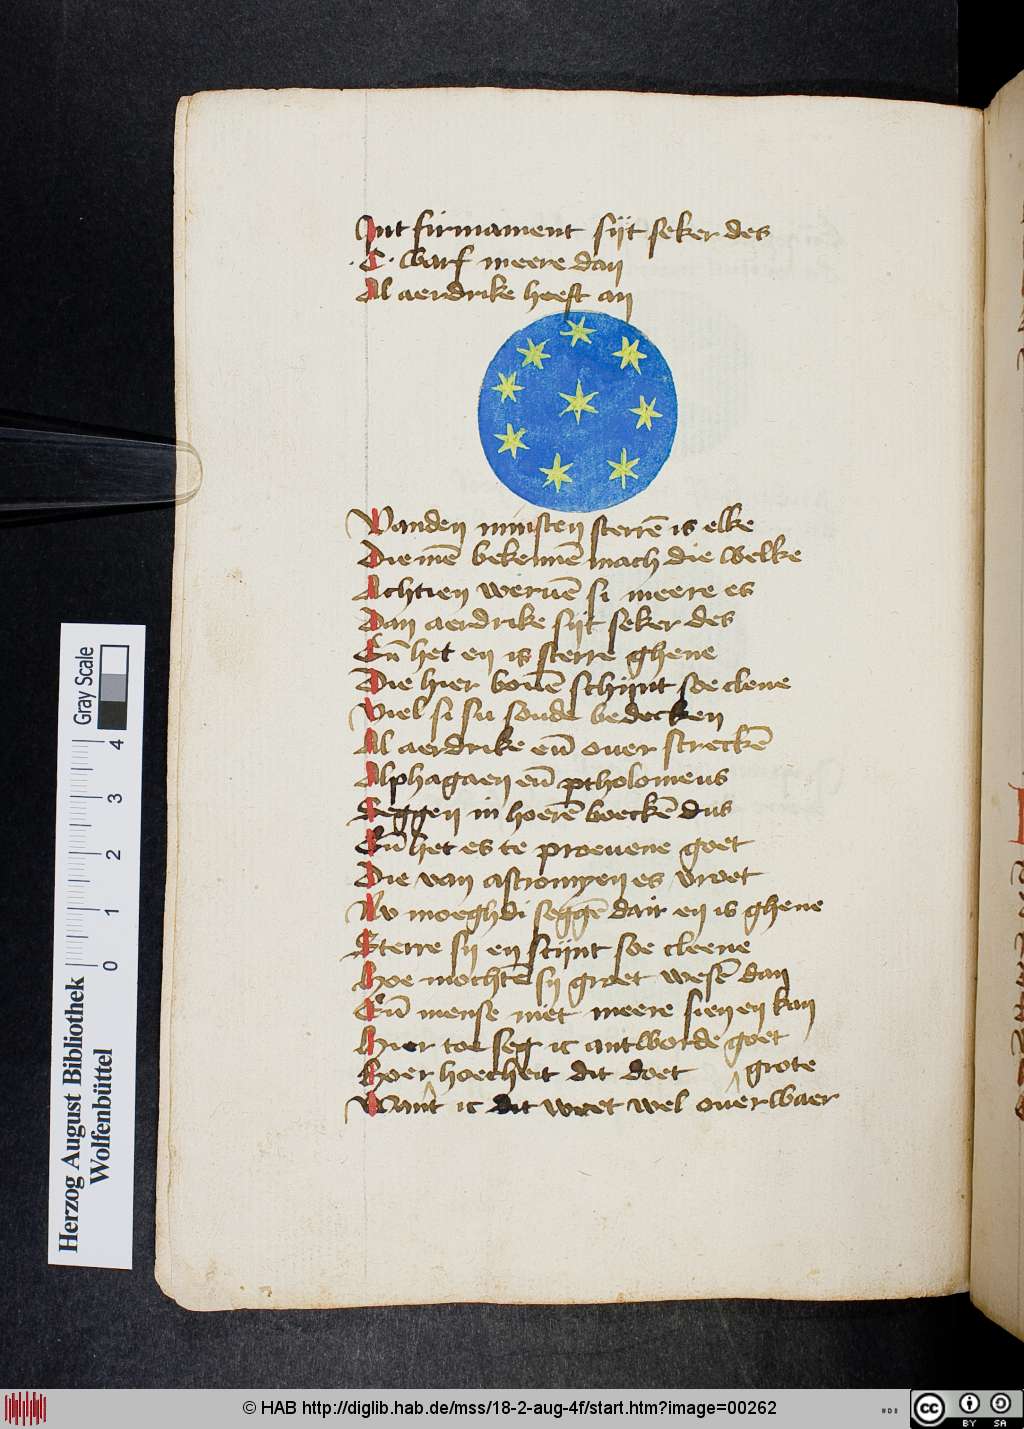 Int firmament sijt seker des
.C. warf meere dan
Al aerdrike heeft an
Vanden minsten sterrē is elke
Die mē bekennē mach die welke
Achtien weruē si meere es
Dan aerdrike sijt seker des
Eñ het en is sterre ghene
Die hier bouē schijnt soe clene
Viel si su soude bedecken
Al aerdrike eñ ouer streckē
Alphagaen eñ ptholomeus
Seggen in hoerē boeckē dus
Eñ het es te proeuene goet
Die van astromyen es vroet
Nv moeghdi seggē dair en is ghene
Sterre sy en scijnt soe cleene
Hoe mochtē sy groet wesē dan
Eñ mense niet meere sien en kan
Hier toe seg ic antworde goet
Hoer hoecheit dit doet grote
Want ic dit weet wel ouerwaer
Herzog August Bibliothek
Wolfenbüttel
Gray Scale
0 1 2 3 4
© HAB http://diglib.hab.de/mss/18-2-aug-4f/start.htm?image=00262
cc
BY SA